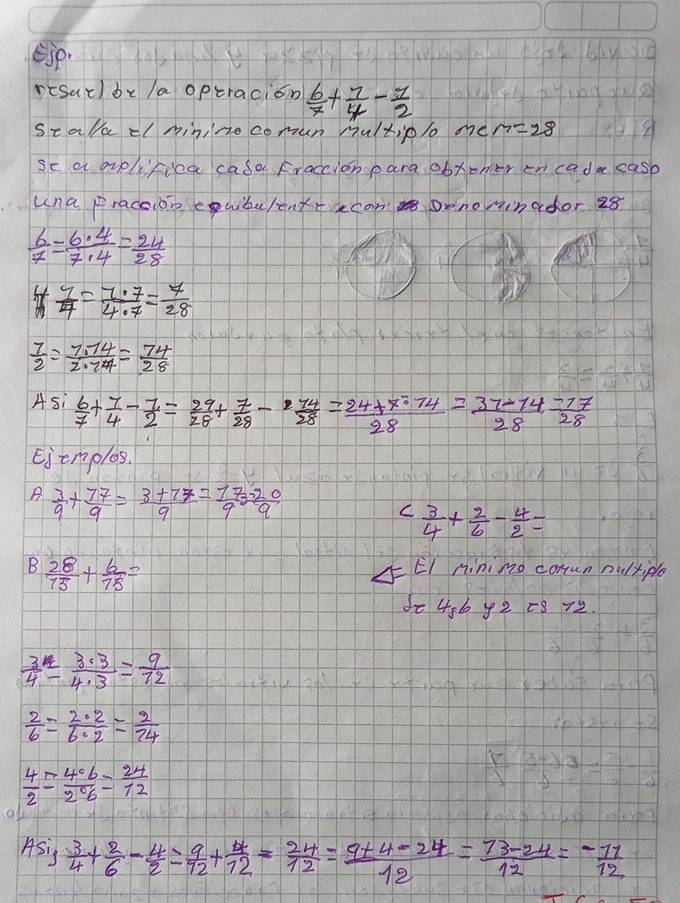 Ejp.
resuelbe la operación 6/7 + 1/4 - 1/2
se alla el minimo comun multiplo mcm=28
se amplifica cada fracción para obtener en cada caso
una fracción equibulente con Denominador 28
6/7 = 6·4/7·4 = 24/28
1/4 = 1·7/4·7 = 7/28
1/2 = 1·14/2·14 = 14/28
Asi 6/7 + 1/4 - 1/2 = 24/28 + 7/28 - 14/28 = 24+7-14/28 = 31-14/28 = 17/28
Ejemplos.
A 3/9 + 17/9 = 3+17/9 = 20/9
C 3/4 + 2/6 - 4/2 =
B 28/15 + 6/15 =
El minimo comun multiplo
de 4,6 y 2 es 12.
3/4 = 3·3/4·3 = 9/12
2/6 = 2·2/6·2 = 2/14
4/2 = 4·6/2·6 = 24/12
Asi, 3/4 + 2/6 - 4/2 = 9/12 + 4/12 = 24/12 = 9+4-24/12 = 13-24/12 = -11/12